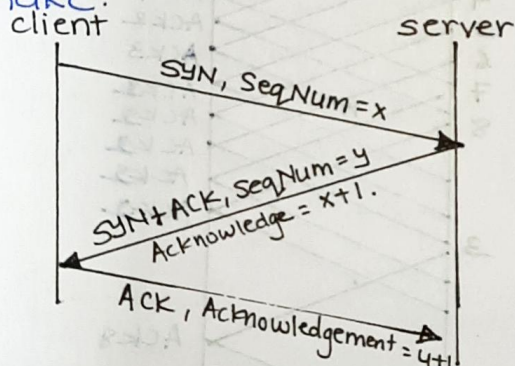 client
server
SYN, SeqNum=x
SYN+ACK, SeqNum=y
Acknowledge = x+1.
ACK, Acknowledgement = y+1